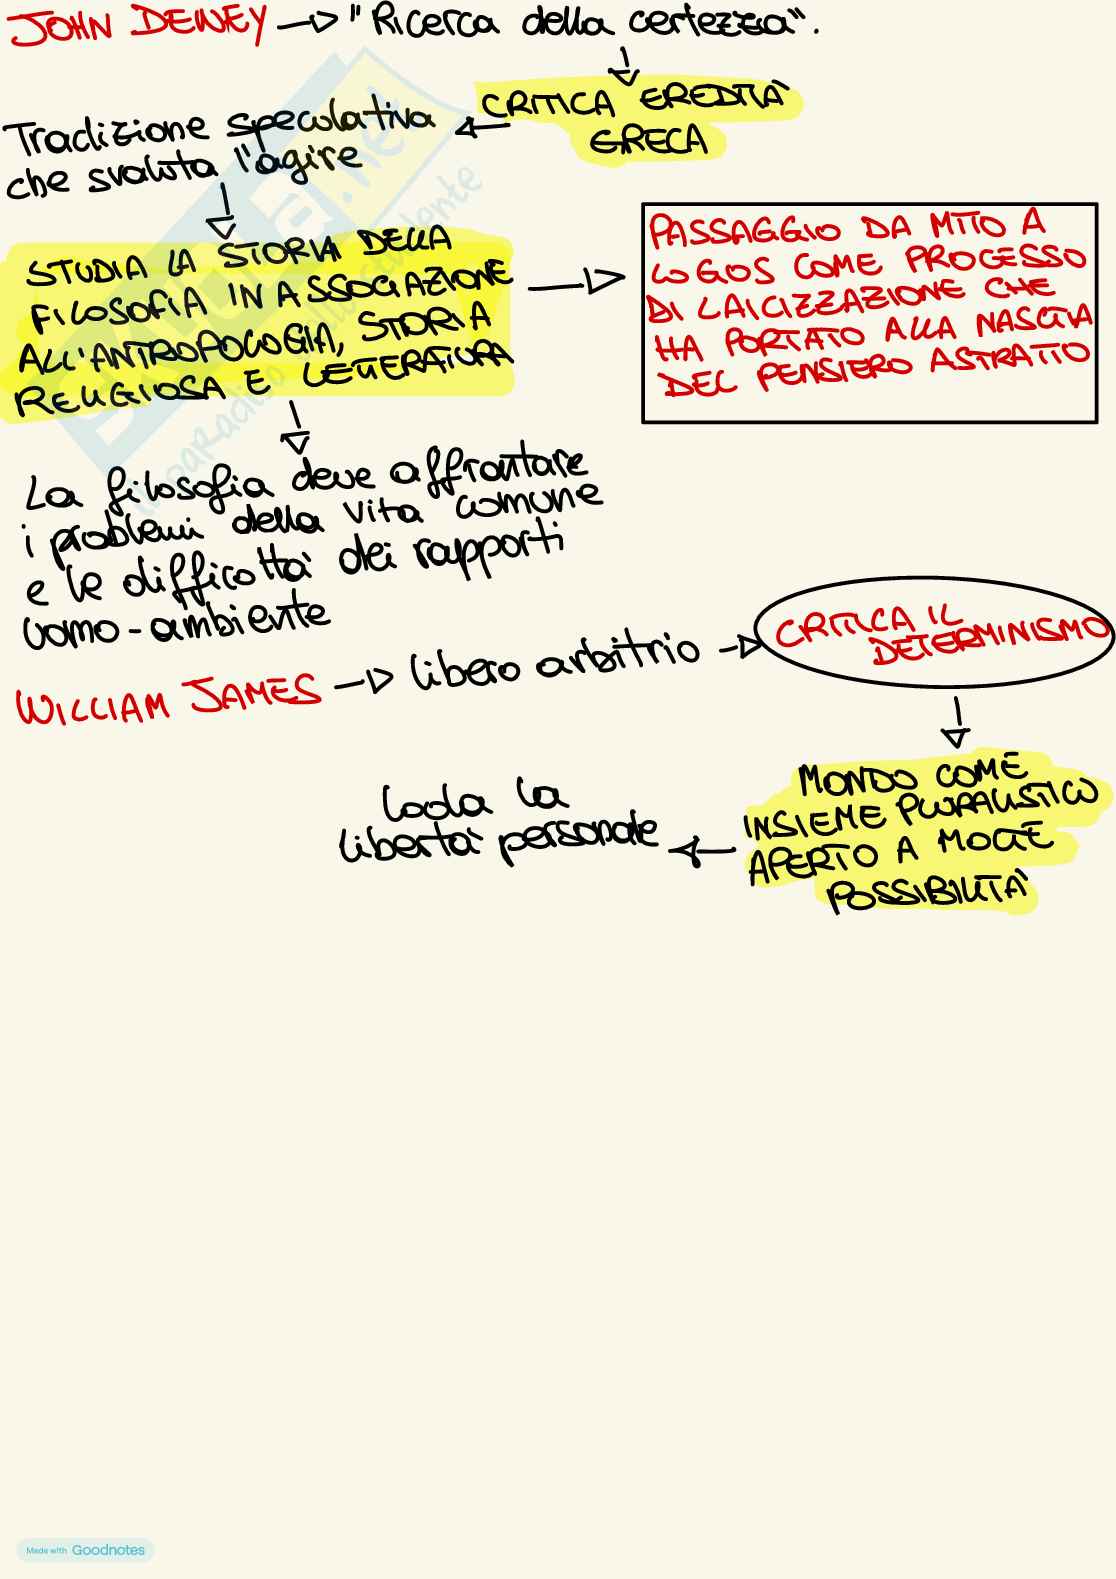 JOHN DEWEY → "Ricerca della certezza".
CRITICA EREDITÀ
GRECA
Tradizione speculativa
che svaluta l'agire
STUDIA LA STORIA DELLA
FILOSOFIA IN ASSOCIAZIONE
ALL'ANTROPOLOGIA, STORIA
RELIGIOSA E LETTERATURA
PASSAGGIO DA MITO A
LOGOS COME PROCESSO
DI LAICIZZAZIONE CHE
HA PORTATO ALLA NASCITA
DEL PENSIERO ASTRATTO
La filosofia deve affrontare
i problemi della vita comune
e le difficoltà dei rapporti
uomo-ambiente
WILLIAM JAMES → libero arbitrio →
CRITICA IL
DETERMINISMO
MONDO COME
INSIEME PLURALISTICO
APERTO A MOLTE
POSSIBILITÀ
Loda la
libertà personale
Made with Goodnotes